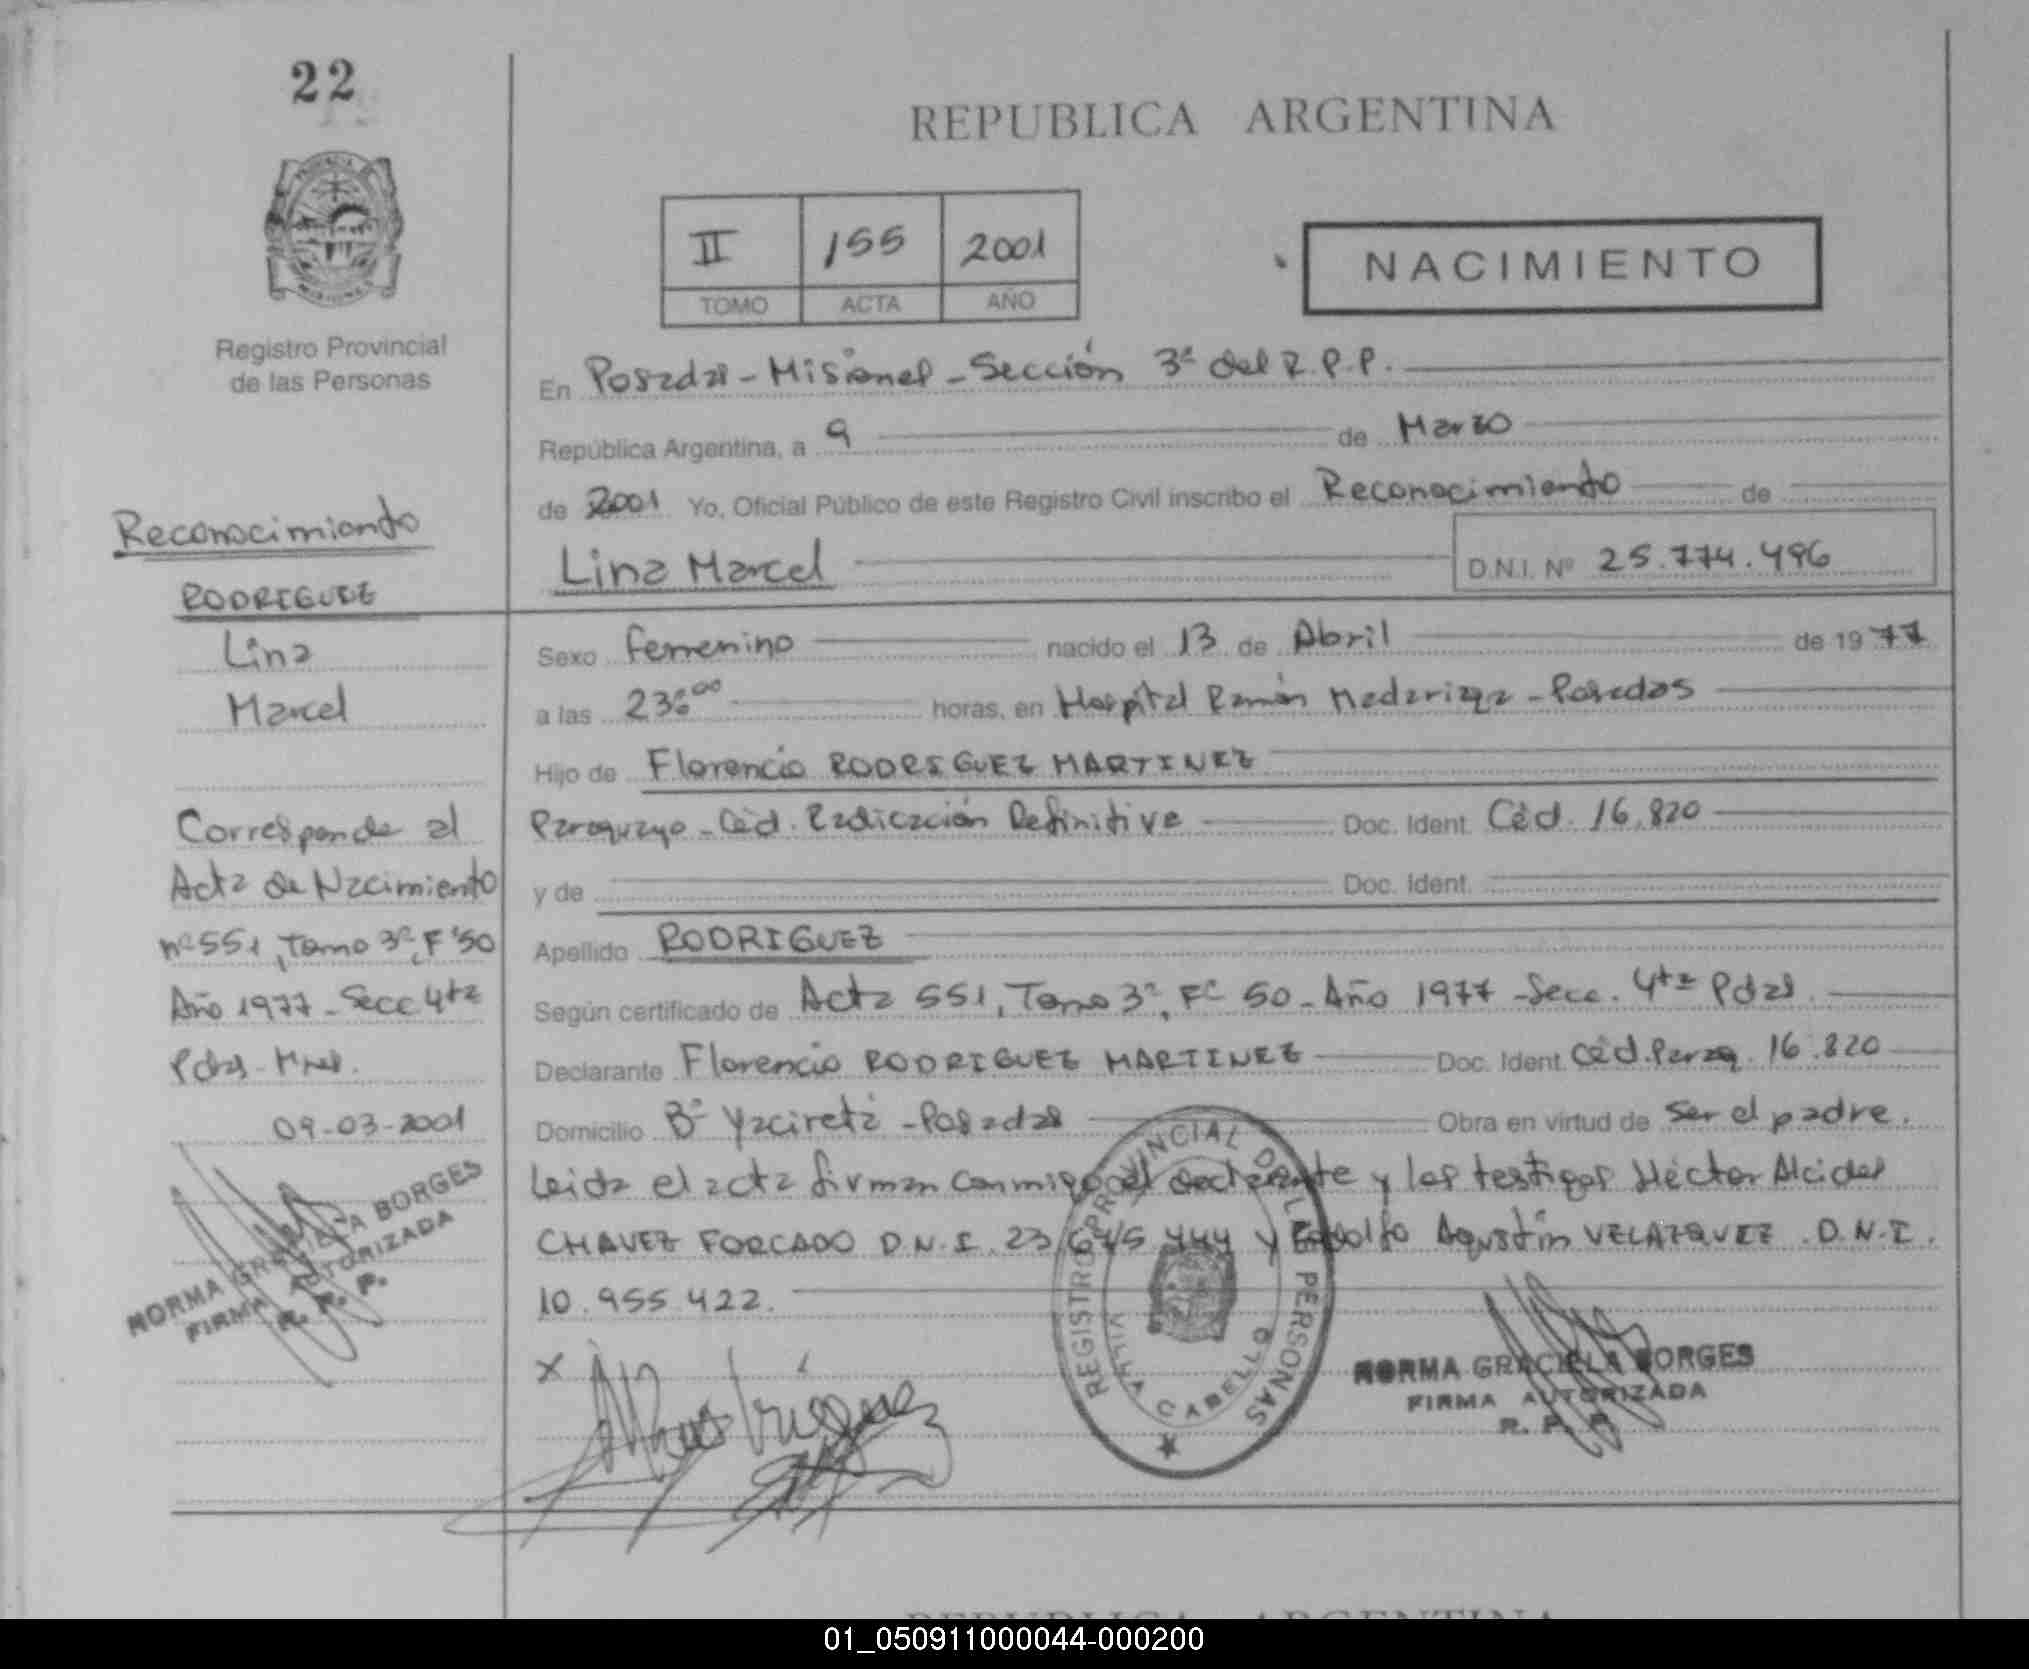 22
REPUBLICA ARGENTINA
II 155 2001
TOMO ACTA AÑO
NACIMIENTO
Registro Provincial
de las Personas
En Posadas - Misiones - Sección 3ª del R.P.P.
República Argentina, a 9 de Marzo
de 2001 Yo, Oficial Público de este Registro Civil inscribo el Reconocimiento de
Lina Marcel D.N.I. Nº 25.774.496
Sexo femenino nacido el 13 de Abril de 1977
a las 23:00 horas, en Hospital Ramón Madariaga - Posadas
Hijo de Florencio RODRIGUEZ MARTINEZ
Paraguayo - Céd. Radicación Definitiva Doc. Ident. Céd. 16.820
y de Doc. Ident.
Apellido RODRIGUEZ
Según certificado de Acta 551, Tomo 3º, Fº 50 - Año 1977 - Secc. 4ta Pdas.
Declarante Florencio RODRIGUEZ MARTINEZ Doc. Ident. Céd. Parag. 16.820
Domicilio Bº Yaciretá - Posadas Obra en virtud de ser el padre.
Leida el acta firman conmigo el declarante y los testigos Héctor Alcides
CHAVEZ FORCADO D.N.I. 23.645.444 y Rodolfo Agustín VELAZQUEZ D.N.I.
10.955.422.
X
REGISTRO PROVINCIAL DE L PERSONAS
CABELLO
NORMA GRACIELA BORGES
FIRMA AUTORIZADA
R. P. P.
Reconocimiento
RODRIGUEZ
Lina
Marcel
Corresponde al
Acta de Nacimiento
nº 551, Tomo 3º, Fº 50
Año 1977 - Secc 4ta
Pdas - Mnes.
09-03-2001
NORMA GRACIELA BORGES
FIRMA AUTORIZADA
R. P. P.
REPUBLICA ARGENTINA
01_050911000044-000200